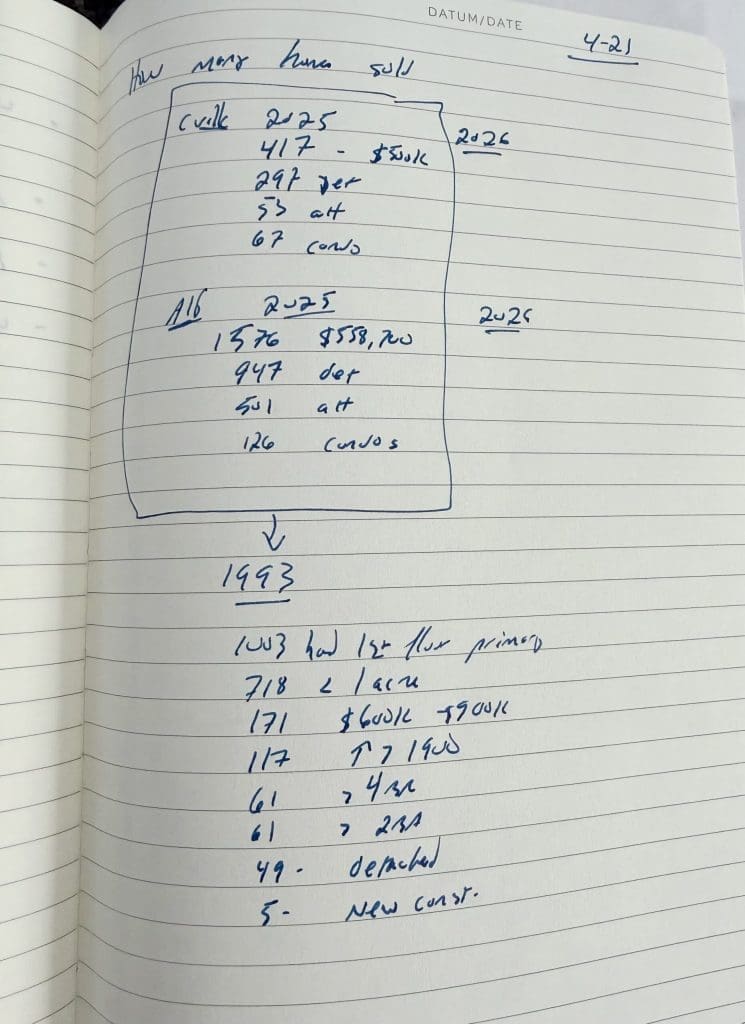 DATUM/DATE
4-21
How many homes sold
Cville 2025
2026
417 - $500K
297 det
53 att
67 condo
Alb 2025
2026
1576 $558,700
947 det
501 att
126 condos
↓
1993
1003 had 1st floor primary
718 < 1 acre
171 $600K - $900K
117 ↑ > 1900
61 > 4BR
61 > 2BA
49 - detached
5 - New const.